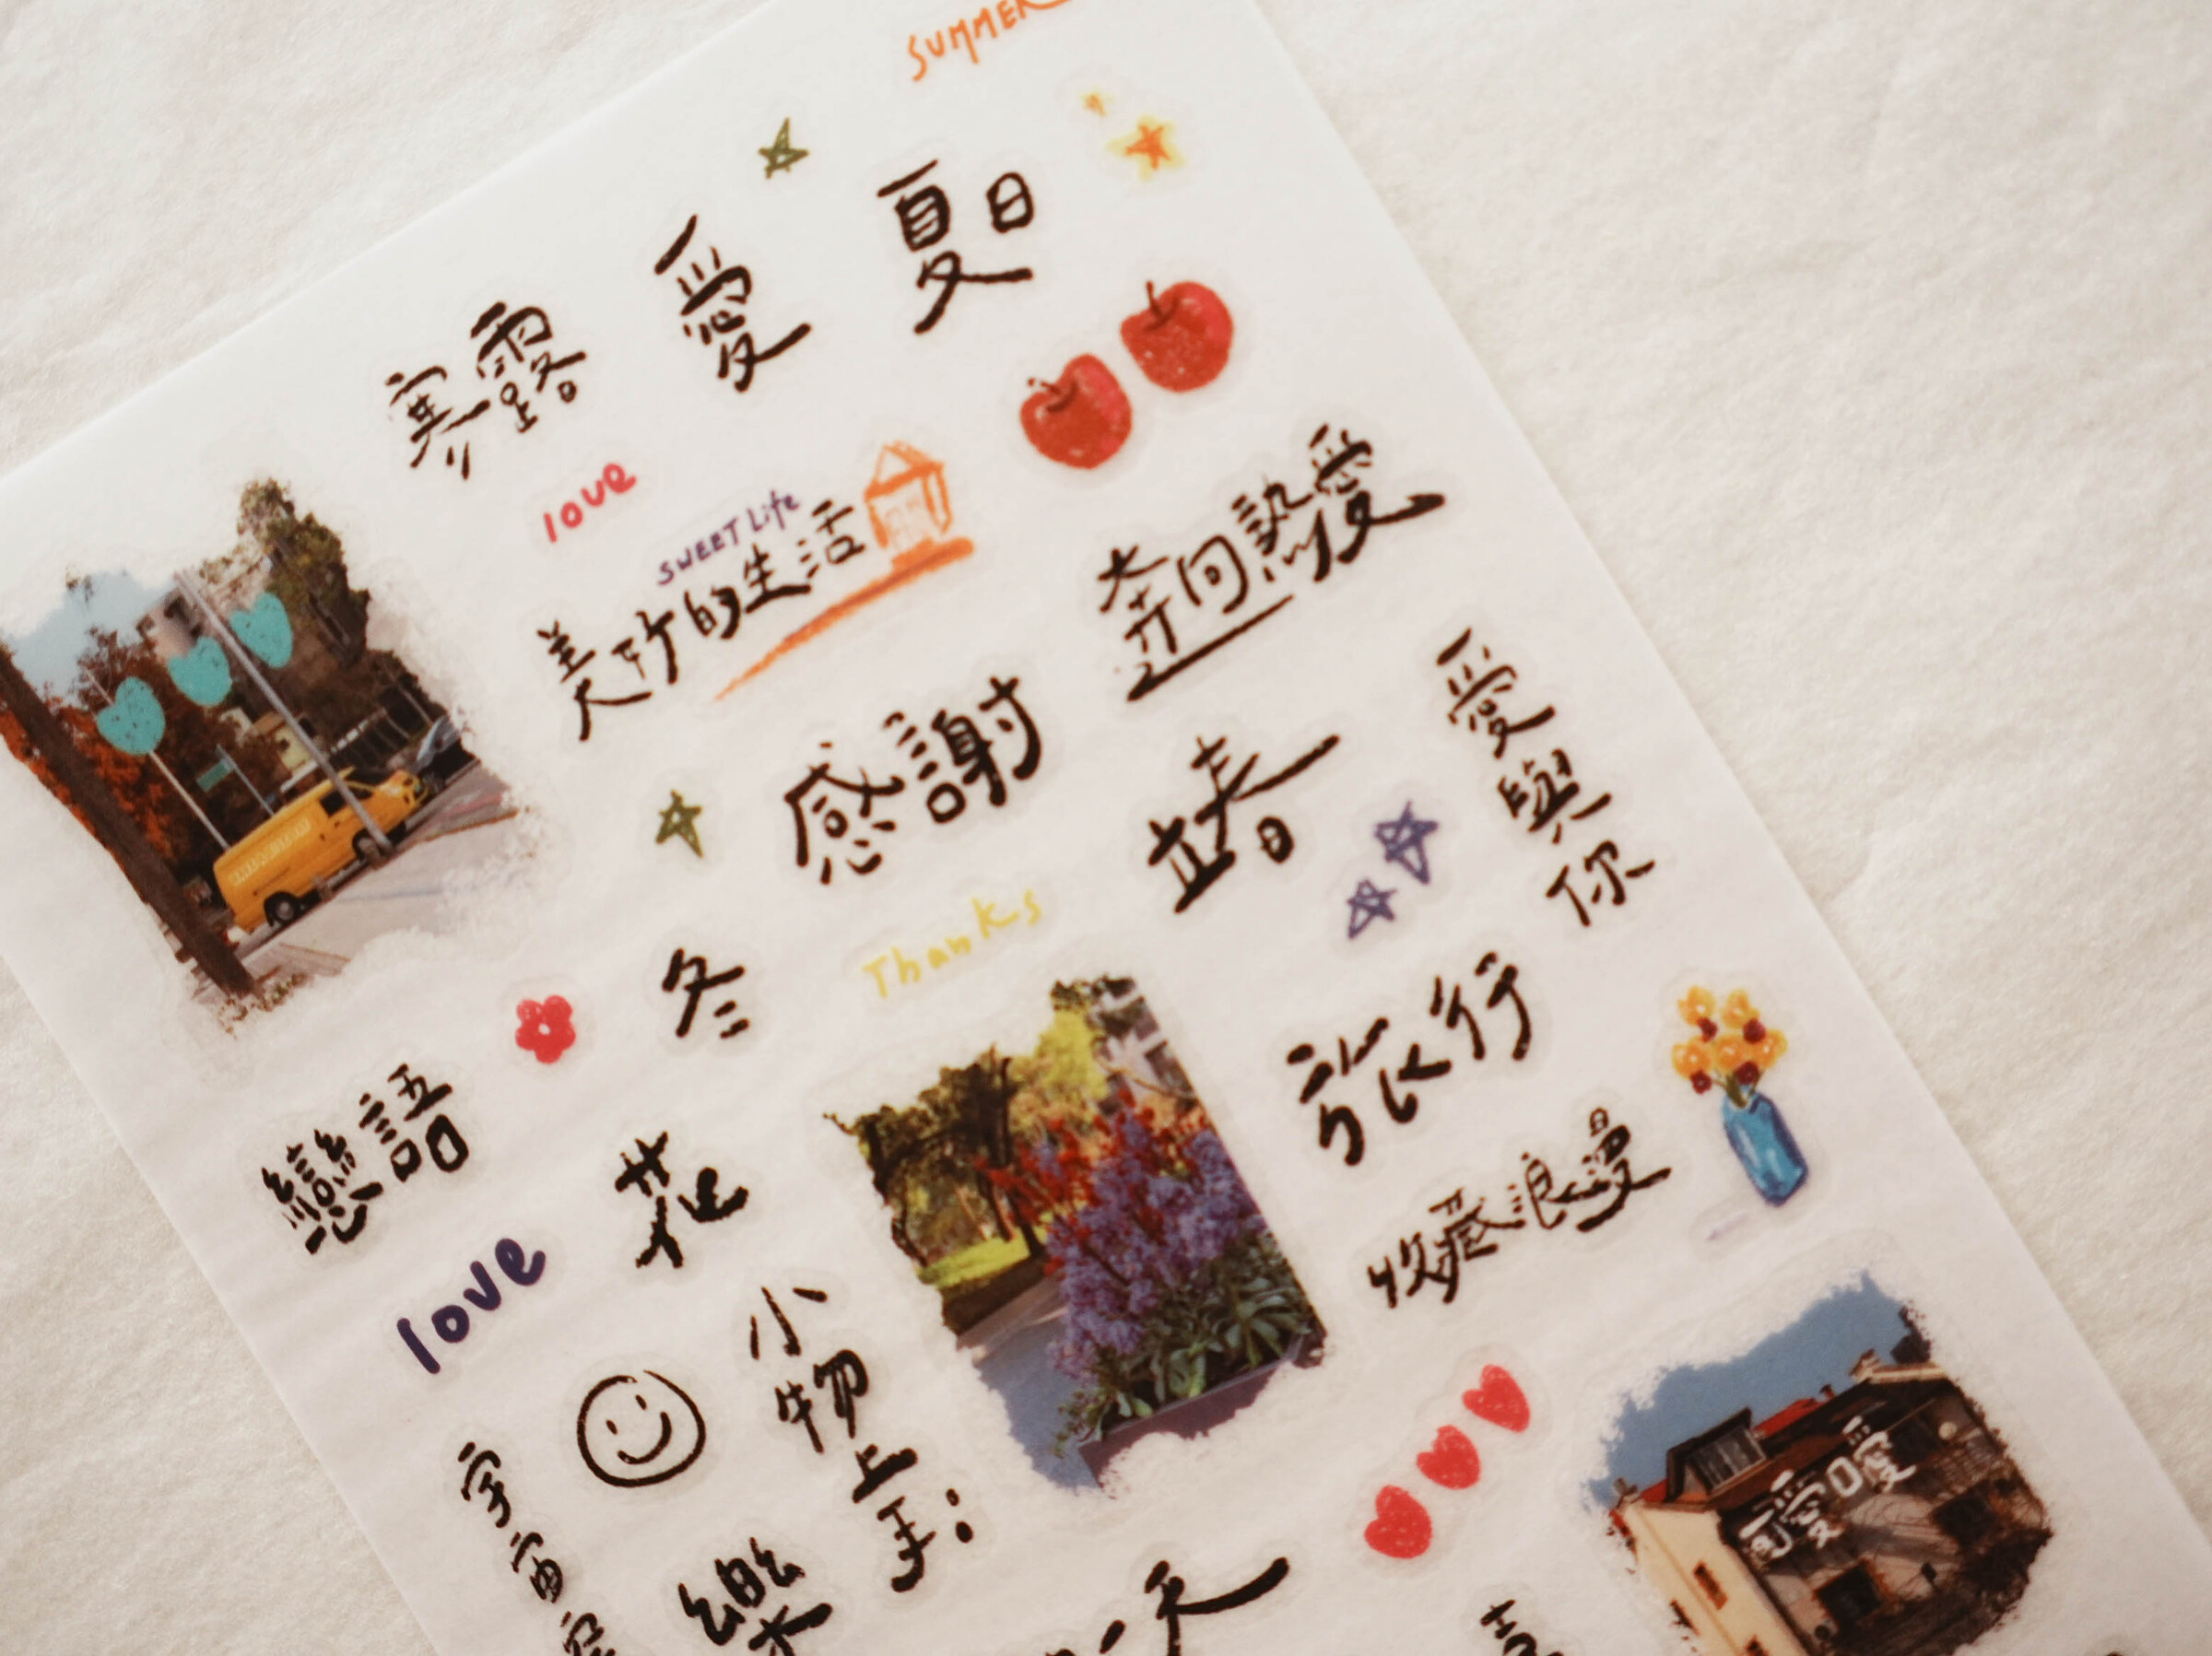 SUMMER
夏日
愛
寒露
love
SWEET Life
美妙的生活
奔回熱愛
感謝
Thanks
立春
愛與你
冬
旅行
戀語
花
love
收藏浪漫
小物上手:
樂
一天
可愛